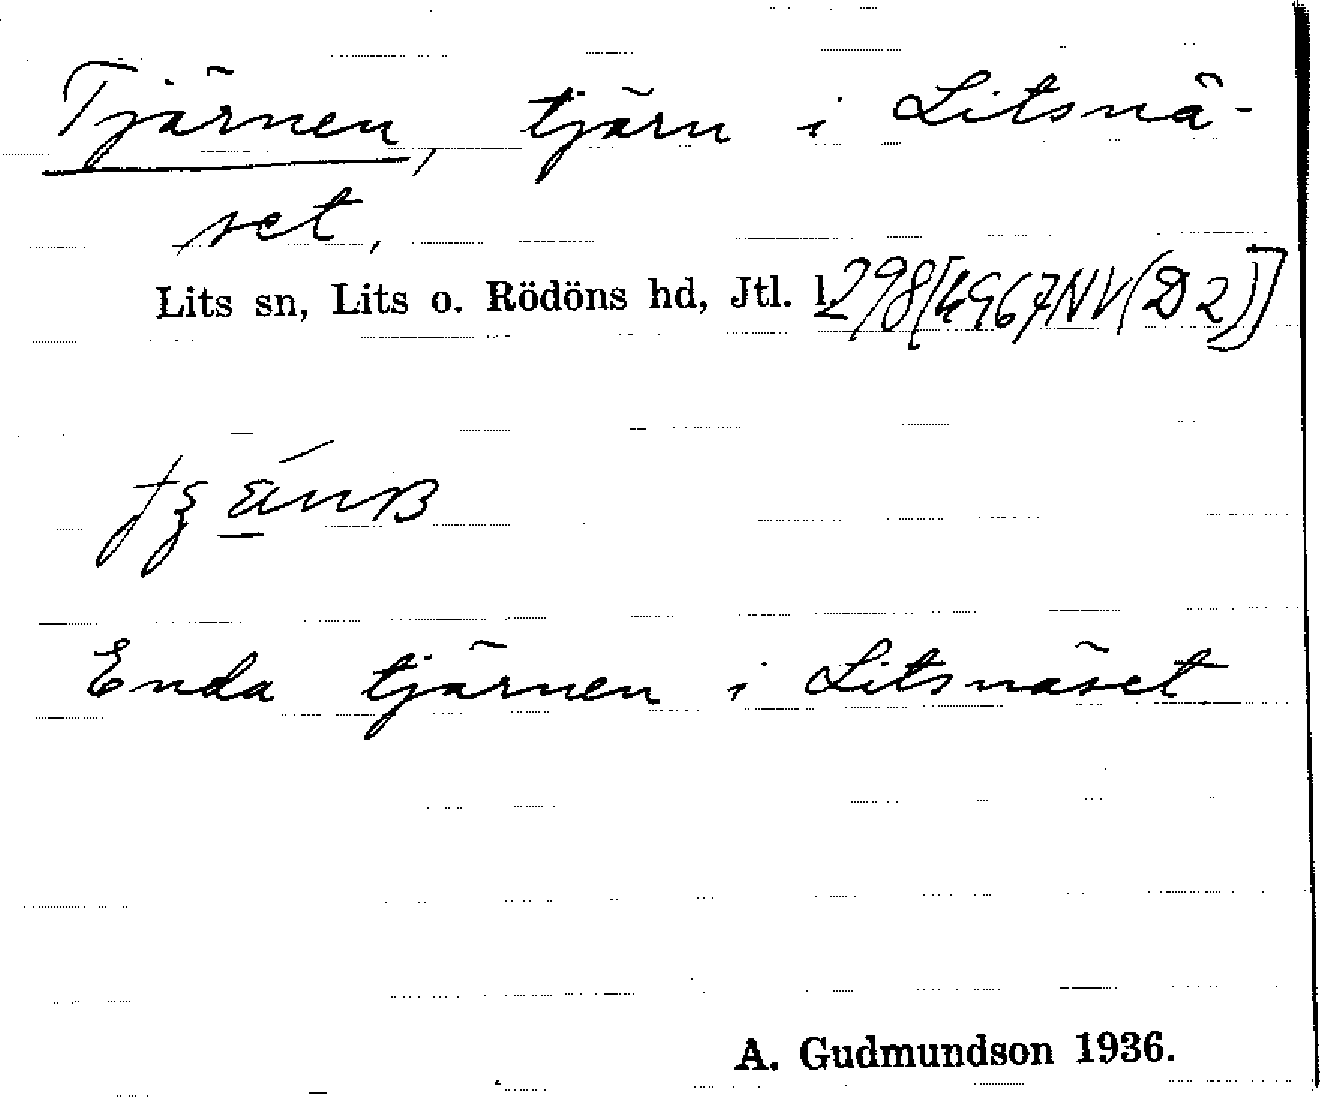 Tjärnen, tjärn i Litsnä-
set,
Lits sn, Lits o. Rödöns hd, Jtl. l. 298[4967NV(D2)]
Enda tjärnen i Litsnäset
A. Gudmundson 1936.